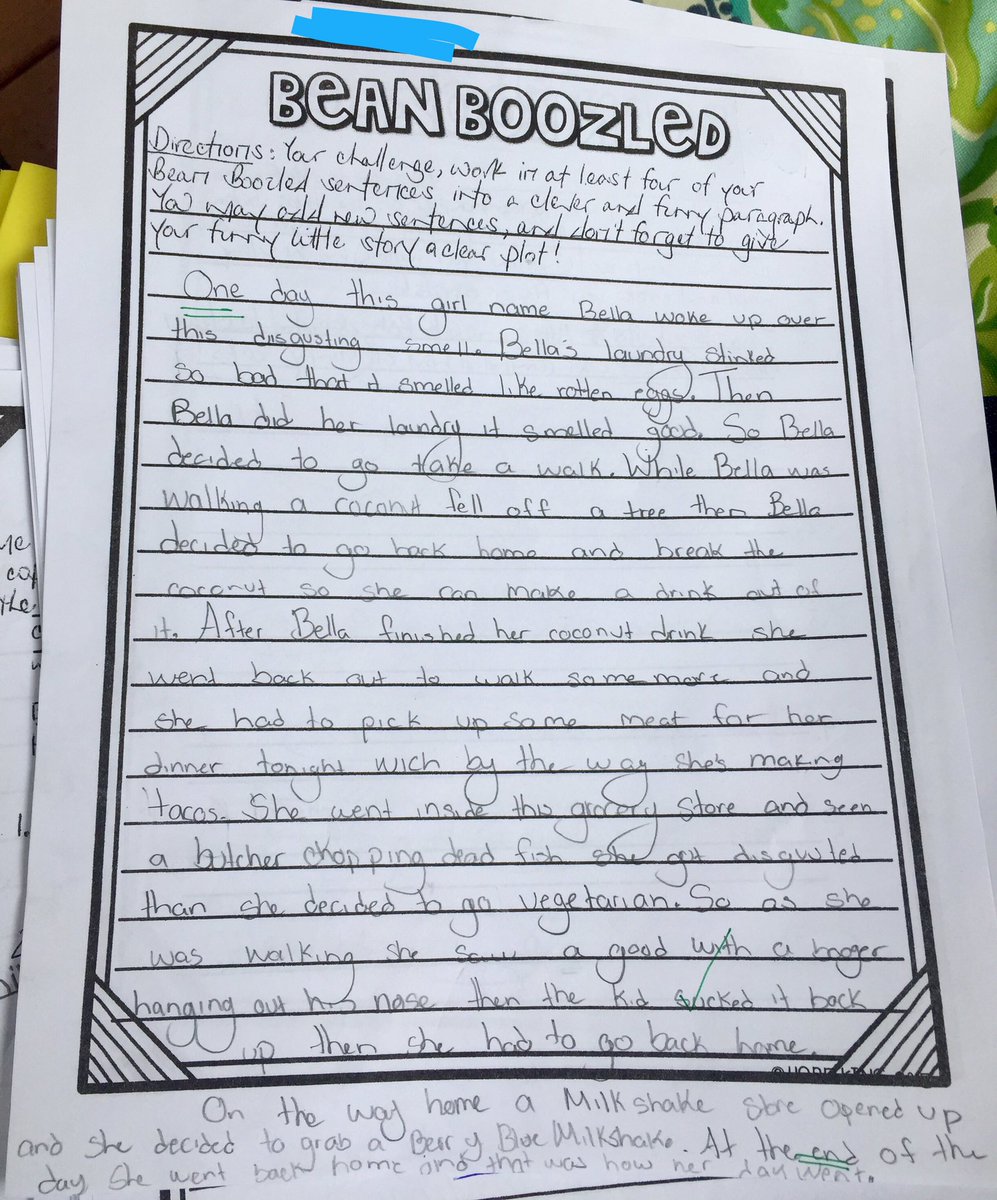 BEAN BOOZLED
Directions: Your challenge, work in at least four of your
Bean Boozled sentences into a clever and funny paragraph.
You may add new sentences, and don't forget to give
your funny little story a clear plot!
One day this girl name Bella woke up over
this disgusting smell. Bella's laundry stinked
so bad that it smelled like rotten eggs. Then
Bella did her laundry it smelled good. So Bella
decided to go take a walk. While Bella was
walking a coconut fell off a tree then Bella
decided to go back home and break the
coconut so she can make a drink out of
it. After Bella finished her coconut drink she
went back out to walk some more and
she had to pick up some meat for her
dinner tonight wich by the way she's making
tacos. She went inside this grocery store and seen
a butcher chopping dead fish she got disgusted
than she decided to go vegetarian. So as she
was walking she saw a good with a booger
hanging out his nose then the kid sucked it back
up then she had to go back home.
On the way home a Milkshake store opened up
and she decided to grab a Berry Blue Milkshake. At the end of the
day she went back home and that was how her day went.
1.